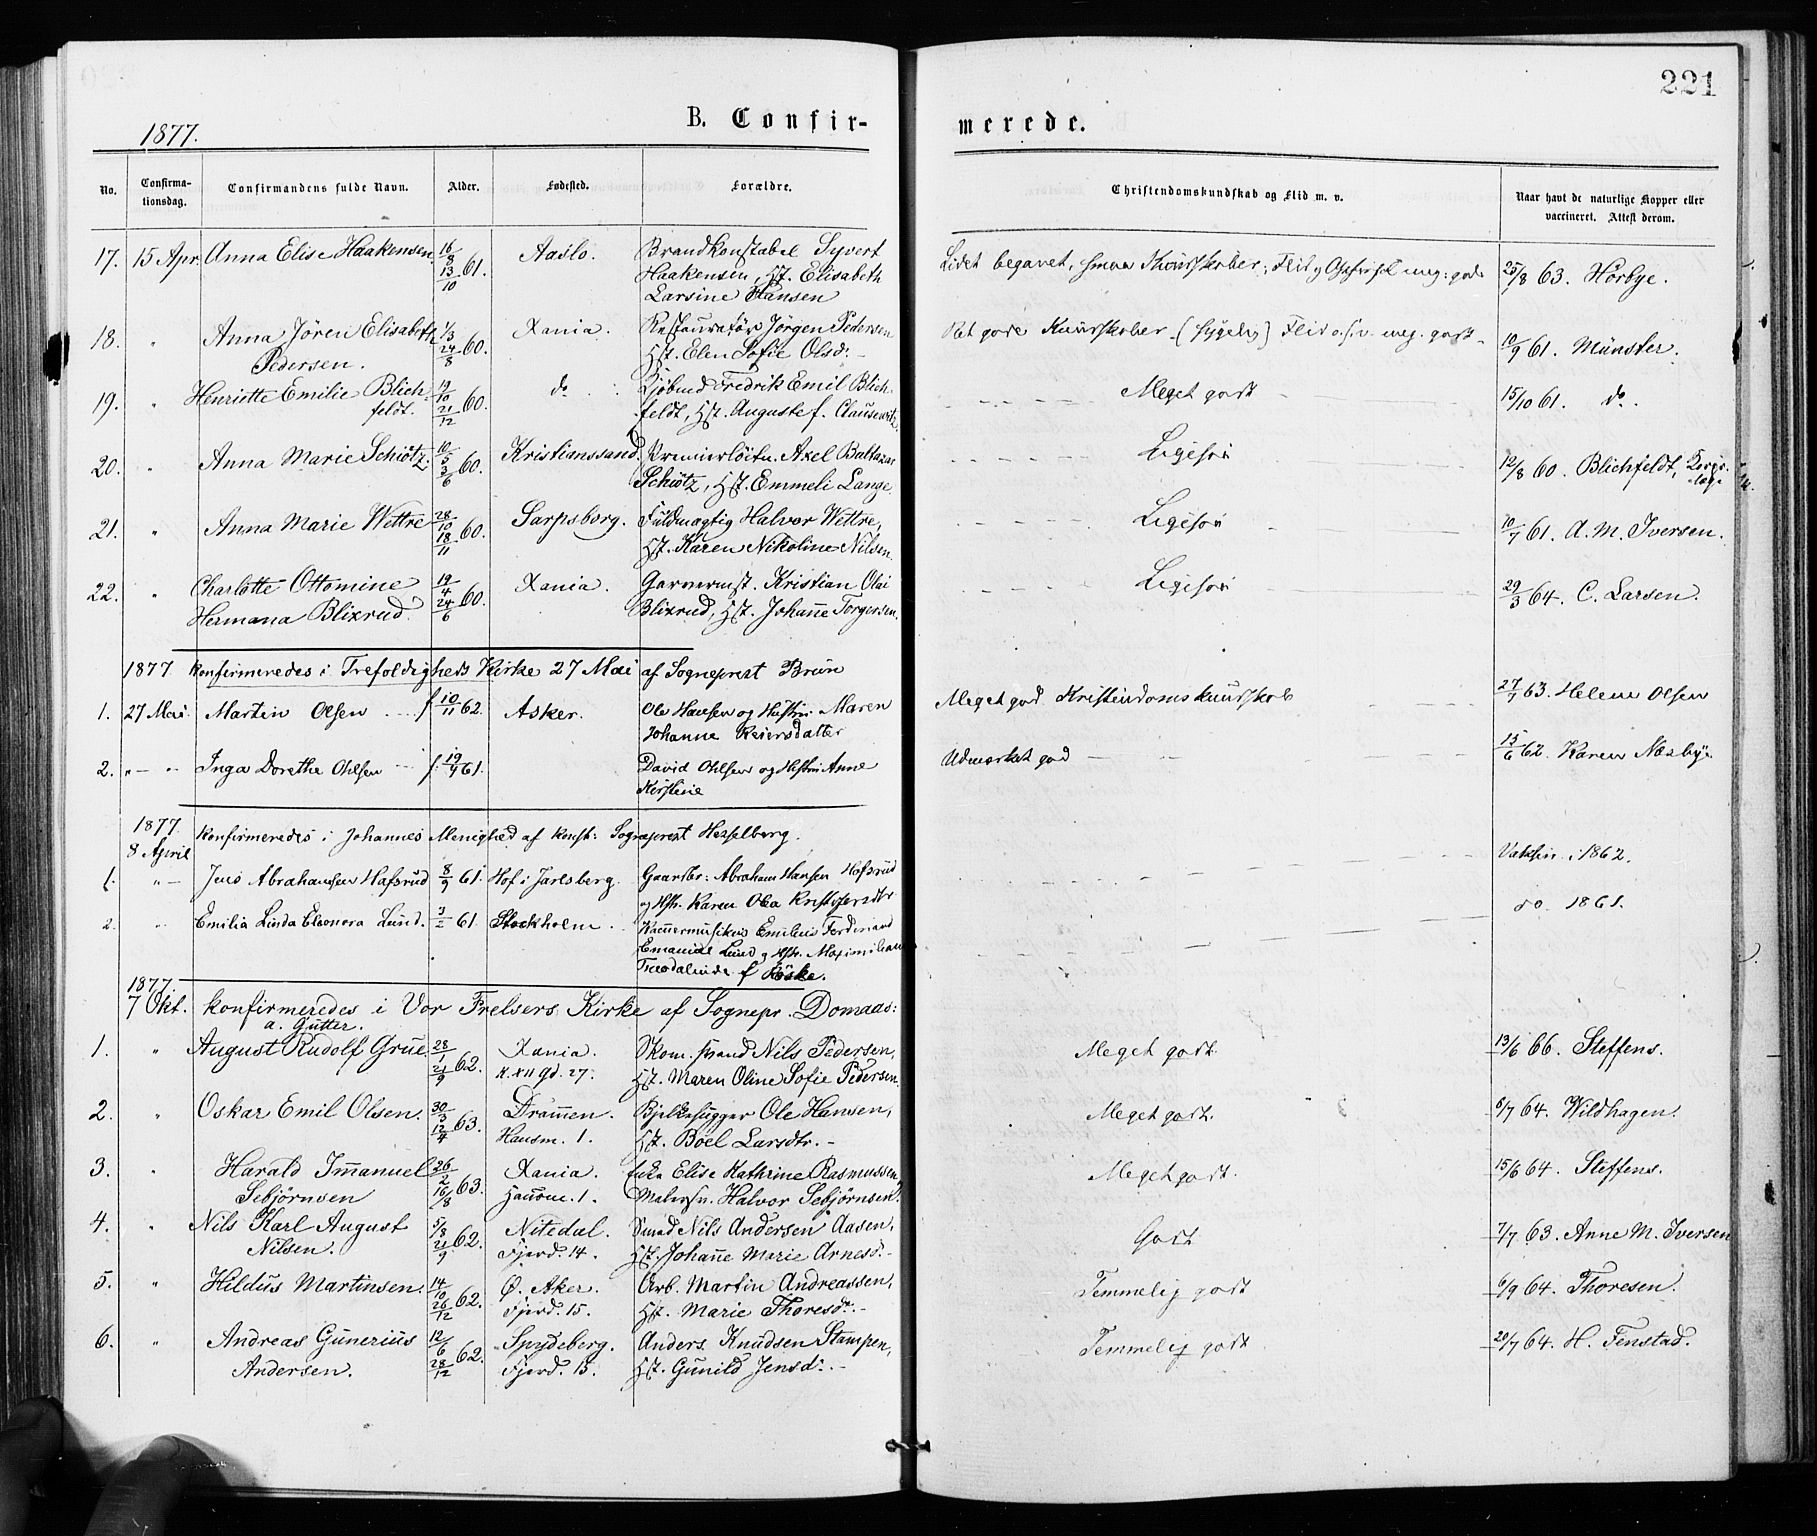 221
1877.
B. Confir-
merede.
No. Confirma-tionsdag. Confirmandens fulde Navn. Alder. Fødested. Forældre. Christendomskundskab og Flid m. v. Naar havt de naturlige Kopper eller vaccineret. Attest derom.
17. 15 Apr. Anna Elise Haakensen. 16/8 13/10 61. Aaslo. Brandkonstabel Syvert
Haakensen, Hst. Elisabeth
Larsine Hansen
Lidet begavet, smaa Kundskaber; Flid og Opførsel meg: godt 25/8 63. Hørbye.
18. " Anna Jören Elisabeth 1/3 24/8 60. Xania. Restauratør Jörgen Pedersen
Pedersen. Hst. Elen Sofie Olsd. -
Ret gode Kundskaber - (sygelig) Flid o.s.v. meg. godt - 10/9 61. Münster.
19. " Henriette Emilie Blich- 19/10 21/12 60. do. Kjöbmd Fredrik Emil Blich-
feldt. feldt, Hst. Auguste f. Clausewitz.
Meget godt 15/10 61. do.
20. " Anna Marie Schiötz. 10/5 3/6 60. Kristianssand. Premierløitn. Axel Baltazar
Schiötz, Hst. Emmeli Lange.
Ligesaa 12/8 60. Blichfeldt, Korps-læge
21. " Anna Marie Wettre 28/10 18/11 60. Sarpsborg. Fuldmægtig Halvor Wettre,
Hst. Karen Nikoline Nilsen.
Ligesaa 10/7 61. A. M. Iversen.
22. " Charlotte Ottomine 19/4 24/6 60. Xania. Garvermst. Kristian Olai
Hermana Blixrud. Blixrud, Hst. Johanne Torgersen.
Ligesaa 29/3 64. C. Larsen.
1877 Konfirmeredes i Trefoldigheds Kirke 27 Mai af Sogneprest Brun
1. 27 Mai. Martin Olsen f 10/11 62. Asker. Ole Hansen og Hustru Maren
Johanne Reiersdatter
Meget god Kristendomskundskab 27/7 63. Helene Olsen
2. " — " Inga Dorethe Ohlsen f. 19/9 61. David Ohlsen og Hustru Anne
Kirstine
Udmærket god 15/6 62. Karen Næsbye
1877.
8 April Konfirmeredes i Johannes Menighed af Konst: Sogneprest Hesselberg.
1. " — Jens Abrahamsen Hafsrud 8/9 61. Hof i Jarlsberg. Gaardbr: Abraham Hansen Hafsrud
og Hstr. Karen Olea Kristofersdtr
Vaksin. i 1862.
2. " Emilia Linda Eleonora Lund. 3/2 61. Stockholm. Kammermusikus Emilius Ferdinand
Emanuel Lund og Hstr. Maximiliane
Theodalinde f. Röske.
do. 1861.
1877.
7 Okt. Konfirmeredes i Vor Frelsers Kirke af Sognepr. Domaas:
a. Gutter.
1. " August Rudolf Grue. 28/1 21/9 62. Xania. Skom. svend Nils Pedersen,
K. XII gd. 27. Hst. Maren Oline Sofie Pedersen.
Meget godt. 13/6 66. Steffens.
2. " Oskar Emil Olsen. 30/3 12/4 63. Drammen. Bjelkehugger Ole Hansen,
Hausm. 1. Hst. Boel Larsdtr. -
Meget godt. 6/7 64. Wildhagen.
3. " Harald Immanuel 26/2 16/8 63. Xania. Enke Elise Kathrine Rasmussen
Sebjörnsen Hausm. 1. Malersv. Halvor Sebjörnsen.
Meget godt. 15/6 64. Steffens.
4. " Nils Karl August 5/3 21/9 62. Nitedal. Smed Nils Andersen Aasen,
Nilsen. Fjerd. 14. Hst. Johanne Marie Arnesd. -
Godt 7/7 63. Anne M. Iversen
5. " Hildus Martinsen. 14/10 26/12 62. Ø. Aker. Arb. Martin Andreassen,
Fjerd. 15. Hst. Marie Thoresdr. -
Temmelig godt 6/9 64. Thoresen.
6. " Andreas Gunerius 12/6 28/12 62. Spydeberg. Anders Knudsen Stampen,
Andersen. Fjerd. 15. Hst. Gunild Jensdr. -
Temmelig godt. 20/7 64. H. Fenstad.